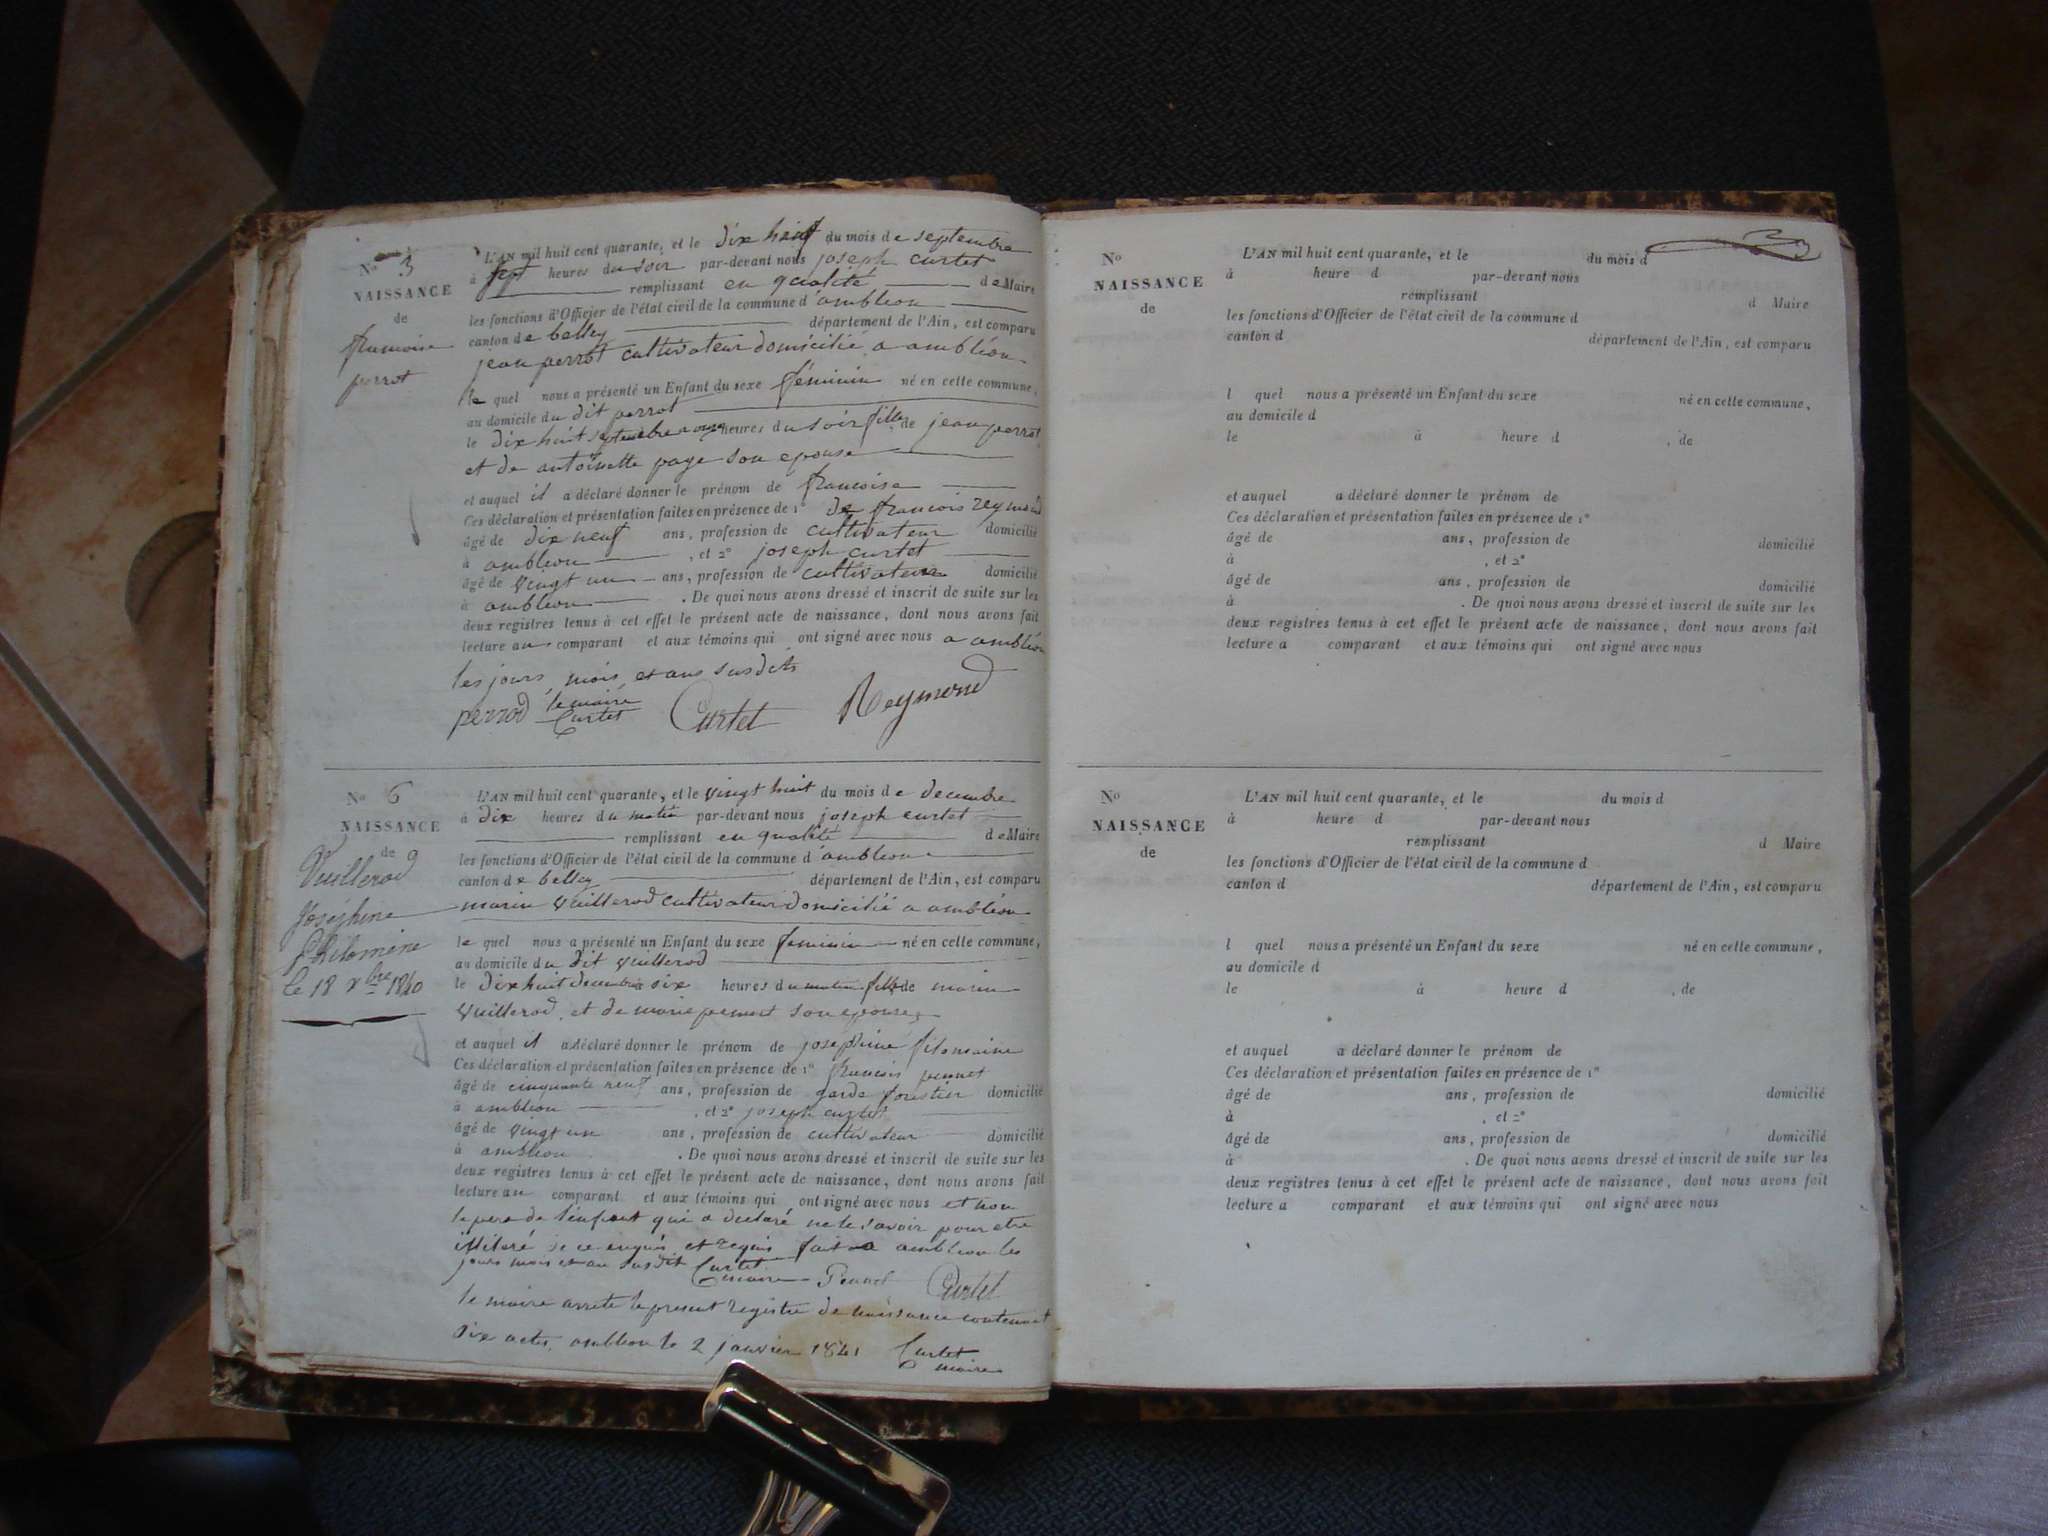 No 5
NAISSANCE
de
francoise
perrot
L'AN mil huit cent quarante, et le dix huit du mois de septembre
à sept heures du soir par-devant nous joseph curtet
remplissant en qualité de Maire
les fonctions d'Officier de l'état civil de la commune d'ambleon
canton de belley département de l'Ain, est comparu
jean perrot cultivateur domicilié a ambléon
le quel nous a présenté un Enfant du sexe féminin né en cette commune,
au domicile du dit perrot
le dix huit septembre a onze heures du soir fille de jean perrot
et de antoinette page son epouse
et auquel il a déclaré donner le prénom de francoise
Ces déclaration et présentation faites en présence de 1° de francois reymond
âgé de dix neuf ans, profession de cultivateur domicilié
à ambleon, et 2° joseph curtet
âgé de vingt un ans, profession de cultivateur domicilié
à ambleon. De quoi nous avons dressé et inscrit de suite sur les
deux registres tenus à cet effet le présent acte de naissance, dont nous avons fait
lecture au comparant et aux témoins qui ont signé avec nous a ambléon
les jours, mois et ans susdits
perrod le maire Curtet Curtet Reymond
No 6
NAISSANCE
de
Vuillerod
Joséphine
Philomène
le 18 xbre 1840
L'AN mil huit cent quarante, et le vingt huit du mois de decembre
à dix heures du matin par-devant nous joseph curtet
remplissant en qualité de Maire
les fonctions d'Officier de l'état civil de la commune d'ambleon
canton de belley département de l'Ain, est comparu
marin vuillerod cultivateur domicilié a ambléon
le quel nous a présenté un Enfant du sexe feminin né en cette commune,
au domicile du dit vuillerod
le dix huit decembre à six heures du matin fille de marin
vuillerod et de marie son epouse
et auquel il a déclaré donner le prénom de joséphine filomaine
Ces déclaration et présentation faites en présence de 1° francois
âgé de cinquante neuf ans, profession de garde forestier domicilié
à ambleon, et 2° joseph curtet
âgé de vingt un ans, profession de cultivateur domicilié
à ambleon. De quoi nous avons dressé et inscrit de suite sur les
deux registres tenus à cet effet le présent acte de naissance, dont nous avons fait
lecture au comparant et aux témoins qui ont signé avec nous et non
le pere de l'enfant qui a declaré ne le savoir pour etre
illiteré de ce enquis et requis fait a ambleon les
jours mois et an susdit Curtet maire Curtet
le maire arrete le present registre de naissance contenant
six actes, ambleon le 2 janvier 1841 Curtet
maire
No
NAISSANCE
de
L'AN mil huit cent quarante, et le du mois d
à heure d par-devant nous
remplissant d Maire
les fonctions d'Officier de l'état civil de la commune d
canton d département de l'Ain, est comparu
l quel nous a présenté un Enfant du sexe né en cette commune,
au domicile d
le à heure d , de
et auquel a déclaré donner le prénom de
Ces déclaration et présentation faites en présence de 1°
âgé de ans, profession de domicilié
à , et 2°
âgé de ans, profession de domicilié
à . De quoi nous avons dressé et inscrit de suite sur les
deux registres tenus à cet effet le présent acte de naissance, dont nous avons fait
lecture a comparant et aux témoins qui ont signé avec nous
No
NAISSANCE
de
L'AN mil huit cent quarante, et le du mois d
à heure d par-devant nous
remplissant d Maire
les fonctions d'Officier de l'état civil de la commune d
canton d département de l'Ain, est comparu
l quel nous a présenté un Enfant du sexe né en cette commune,
au domicile d
le à heure d , de
et auquel a déclaré donner le prénom de
Ces déclaration et présentation faites en présence de 1°
âgé de ans, profession de domicilié
à , et 2°
âgé de ans, profession de domicilié
à . De quoi nous avons dressé et inscrit de suite sur les
deux registres tenus à cet effet le présent acte de naissance, dont nous avons fait
lecture a comparant et aux témoins qui ont signé avec nous